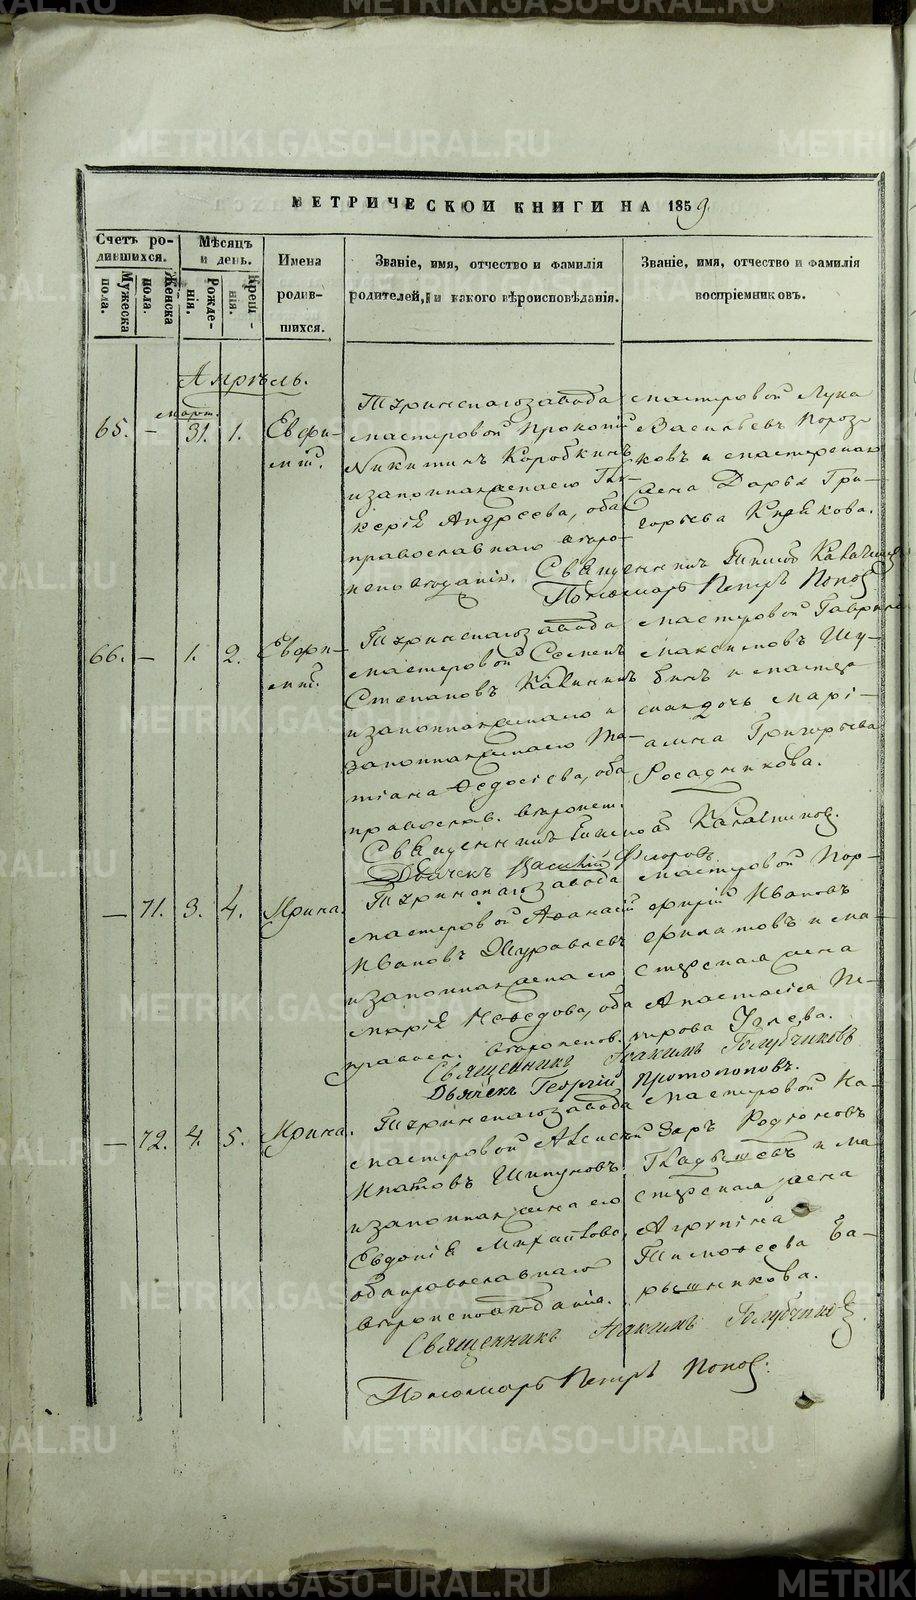 METRIKI.GASO-URAL.RU
МЕТРИЧЕСКОЙ КНИГИ НА 1859
Счетъ ро-
дившихся.
Мужеска
пола.
Женска
пола.
Мѣсяцъ
и день.
Рожде-
нія.
Крещ-
нія.
Имена
родив-
шихся.
Званіе, имя, отчество и фамилія
родителей, и какого вѣроисповѣданія.
Званіе, имя, отчество и фамилія
воспріемниковъ.
Апрѣль.
65. — март. 31. 1. Евфи-
мій.
Туринскаго завода
мастеровой Прокопій
Никитинъ Коробкинъ
и законная его Гли-
керія Андреева, оба
православнаго вѣро-
исповѣданія.
мастеровой Лука
Васильевъ Пороз-
ковъ и мастерская
жена Дарья Гри-
горьева
Священникъ Тимофей Калачниковъ
Пономарь Петръ Поповъ
66. — 1. 2. Евфи-
мій.
Туринскаго завода
мастеровой Семенъ
Степановъ Калининъ
и законная его
Та-
тіана Федосіева, оба
православ. вѣроисп.
мастеровой Гаврил
Максимовъ Шу-
бинъ и мастер-
ская дочь Марі-
амна Григорьева
Росадникова.
Священникъ Тимофей Калачниковъ
Дьячекъ Василій Флоровъ
— 71. 3. 4. Ирина.
Туринскаго завода
мастеровой Афанасій
Ивановъ Журавлевъ
и законная жена его
Марія Нефедова, оба
правосл. вѣроиспов.
мастеровой Пор-
фирій Ивановъ
Филатовъ и ма-
стерская жена
Анастасія Пе-
трова Углева.
Священникъ Іоакимъ Голубчиковъ
Дьячекъ Георгій Протопоповъ.
— 72. 4. 5. Ирина.
Туринскаго завода
мастеровой Алексѣй
Ипатовъ Шипуновъ
и законная жена его
Евдокія Михайлова,
оба православнаго
вѣроисповѣданія.
мастеровой На-
заръ Родіоновъ
Гладышевъ и ма-
стерская жена
Агрипина
Тимофеева Ба-
рышникова.
Священникъ Іоакимъ Голубчиковъ
Пономарь Петръ Поповъ.